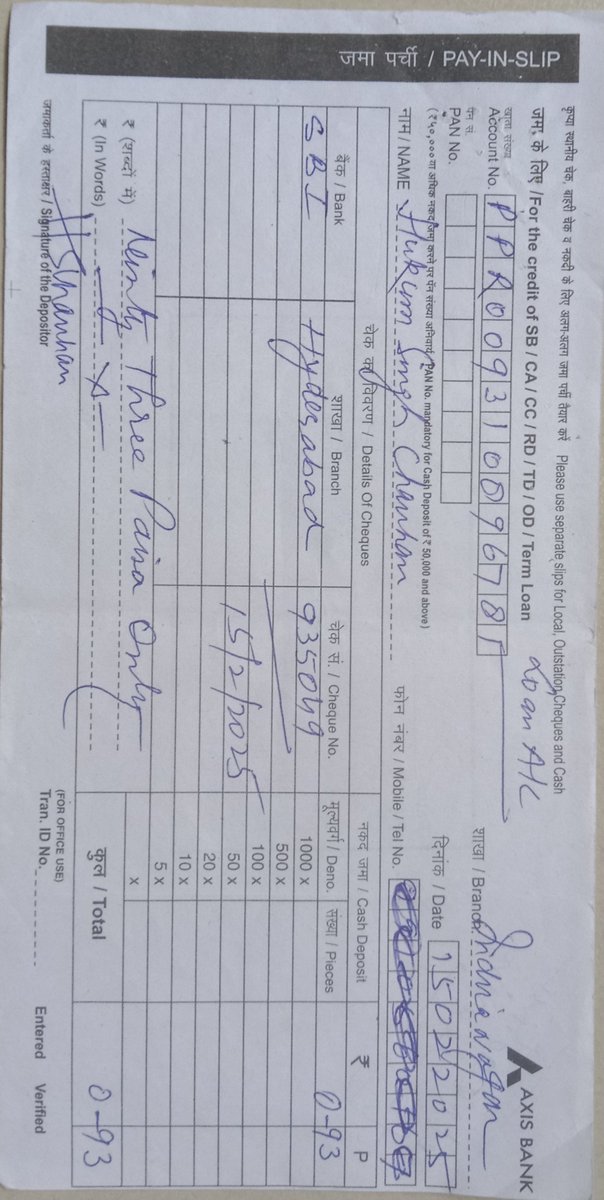 जमा पर्ची / PAY-IN-SLIP
कृपया स्थानीय चेक, बाहरी चेक व नकदी के लिए अलग-अलग जमा पर्ची तैयार करें Please use separate slips for Local, Outstation Cheques and Cash
AXIS BANK
जमा के लिए / For the credit of SB / CA / CC / RD / TD / OD / Term Loan Loan A/C
शाखा / Branch
खाता संख्या
Account No. PPR009310096781
दिनांक / Date 15022025
पैन सं.
PAN No.
(₹ ५०,००० या अधिक नकद जमा करने पर पॅन संख्या अनिवार्य / PAN No. mandatory for Cash Deposit of ₹ 50,000 and above)
नाम / NAME Hukum Singh Chauhan
फोन नंबर / Mobile / Tel No.
चेक का विवरण / Details Of Cheques
नकद जमा / Cash Deposit
₹ P
बैंक / Bank शाखा / Branch चेक सं. / Cheque No. मूल्यवर्ग / Deno. संख्या / Pieces
SBI Hyderabad 935049 1000 x 0-93
500 x
100 x
15/2/2025 50 x
20 x
10 x
5 x
x
₹ (शब्दों में) Ninty Three Paisa Only
₹ (In Words) — x —
कुल / Total 0-93
जमाकर्ता के हस्ताक्षर / Signature of the Depositor
HSChauhan
(FOR OFFICE USE)
Tran. ID No. Entered Verified